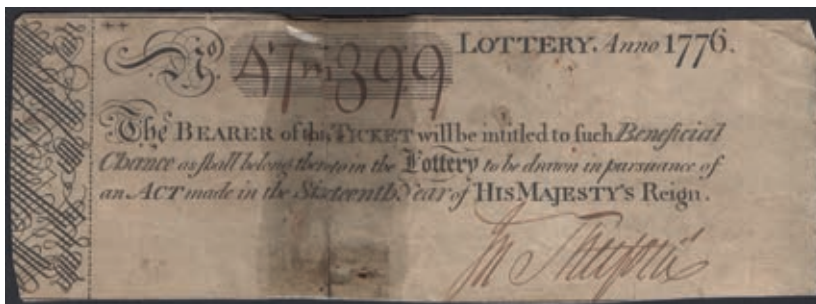 No. 47m399 LOTTERY. Anno 1776.
The BEARER of this TICKET will be intitled to such Beneficial
Chance as shall belong thereto in the Lottery to be drawn in pursuance of
an ACT made in the Sixteenth Year of HIS MAJESTY'S Reign.